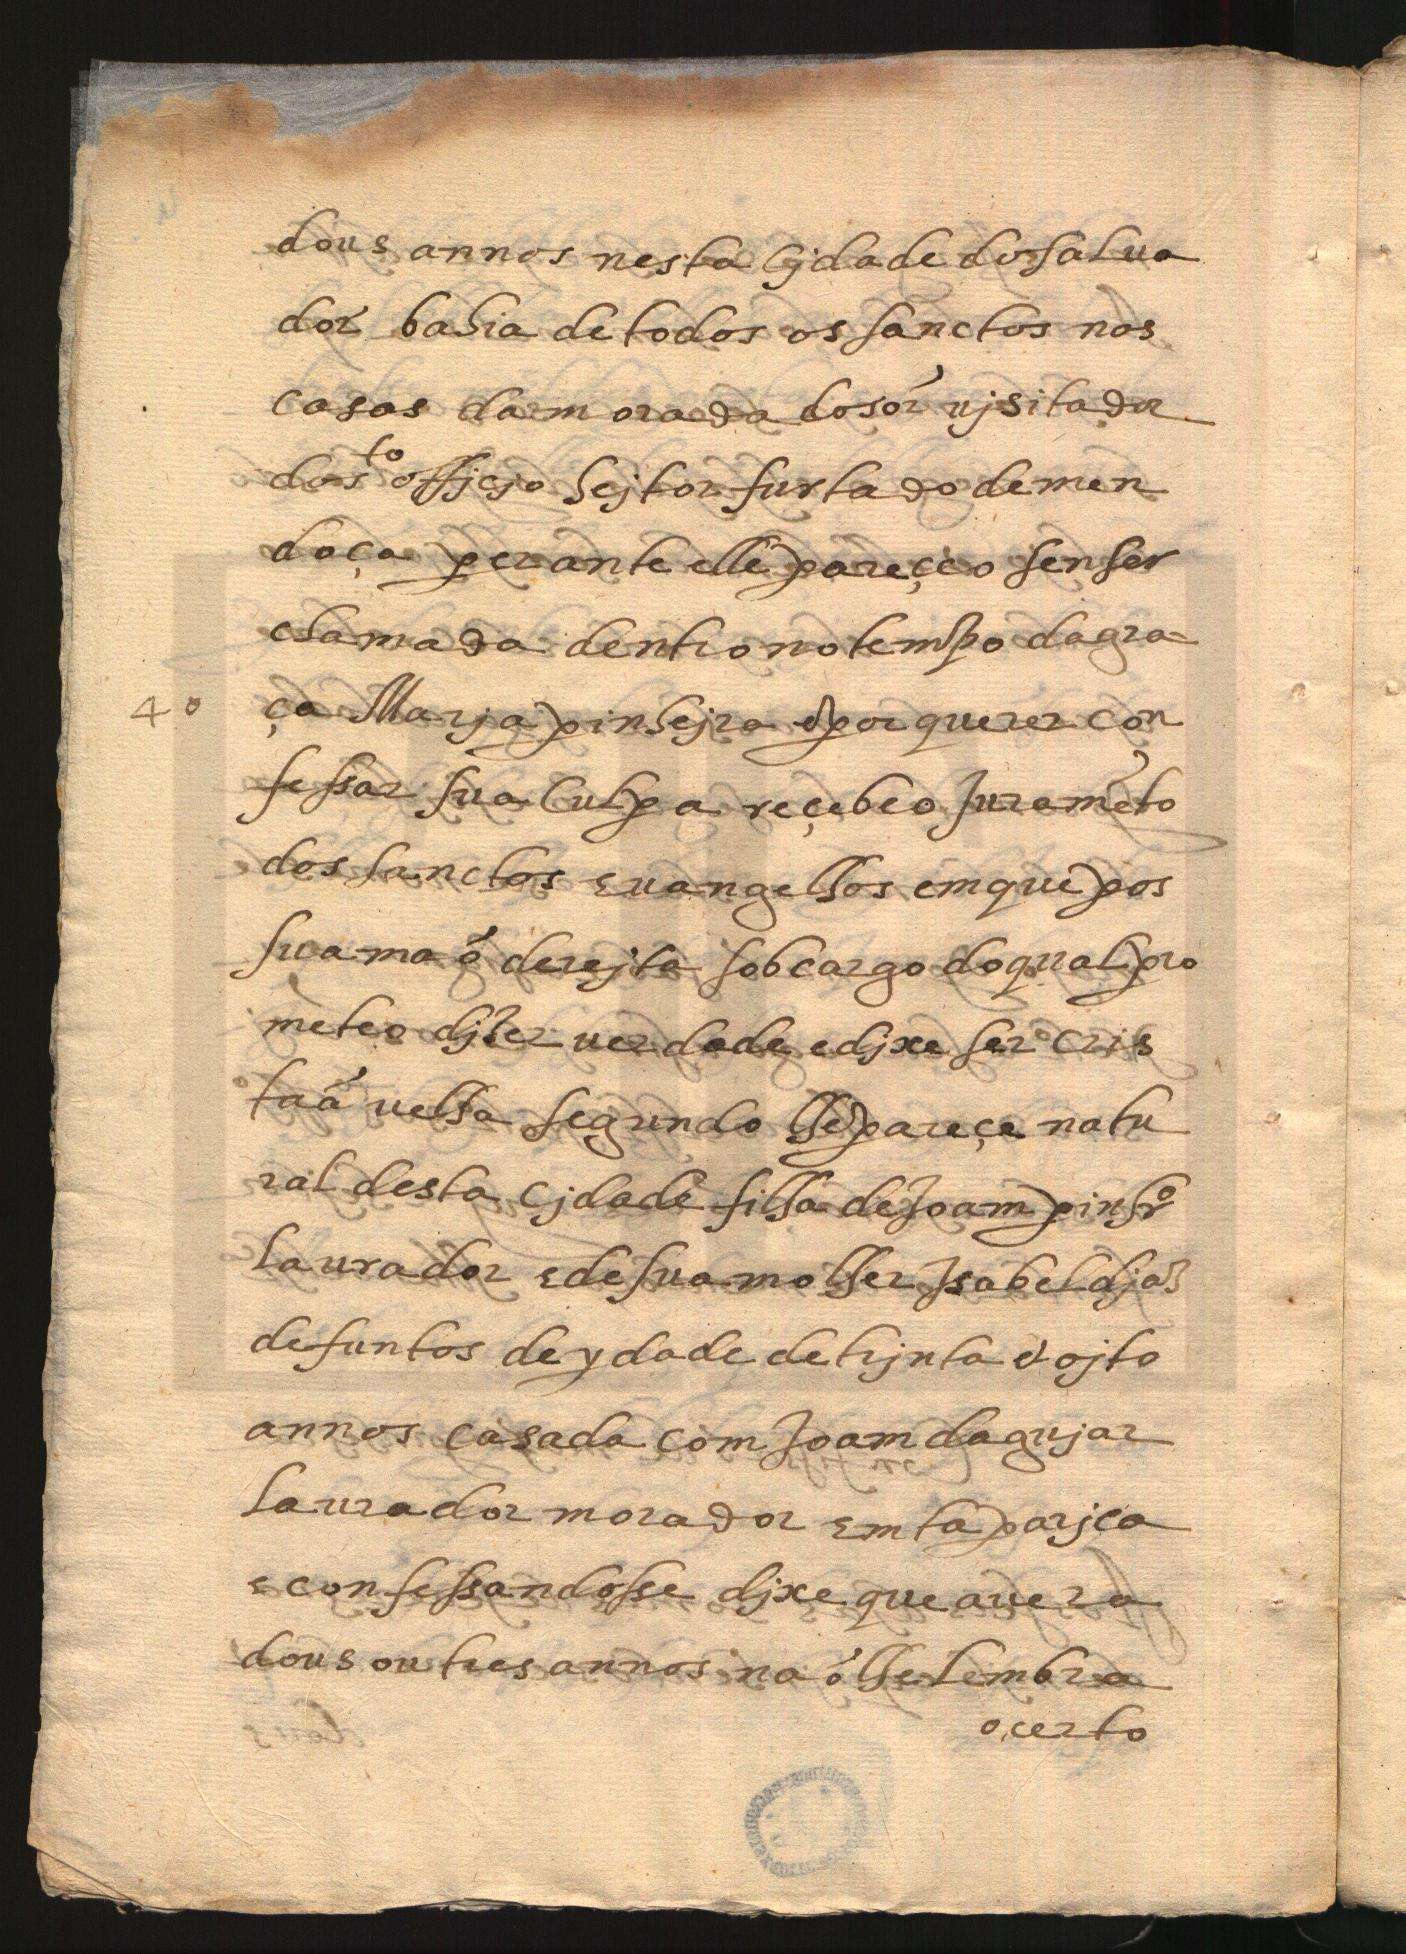 dous annos nesta Cjdade do salua
dor bahia de todos os sanctos nas
casas da morada do sor vjsitador
do sto officjo hejtor furtado de men
doça perante elle pareçeo sen ser
chamada dentro no tempo da gra=
4º ça Marja pinhejra & por querer con
fessar sua Culpa reçebeo Juramẽto
dos sanctos euangelhos em que pos
sua maõ derejta sob cargo do qual pro
meteo djzer verdade e djxe ser cris
taã velha segundo lhe pareçe natu
ral desta Cjdade filha de Joam pinhrº
laurador e de sua molher Jsabel djaz
defuntos de ydade de trjnta & ojto
annos casada com Joam dagujar
laurador morador em taparjca
e confessandosse djxe que auera
dous ou tres annos naõ lhe lembra
o certo